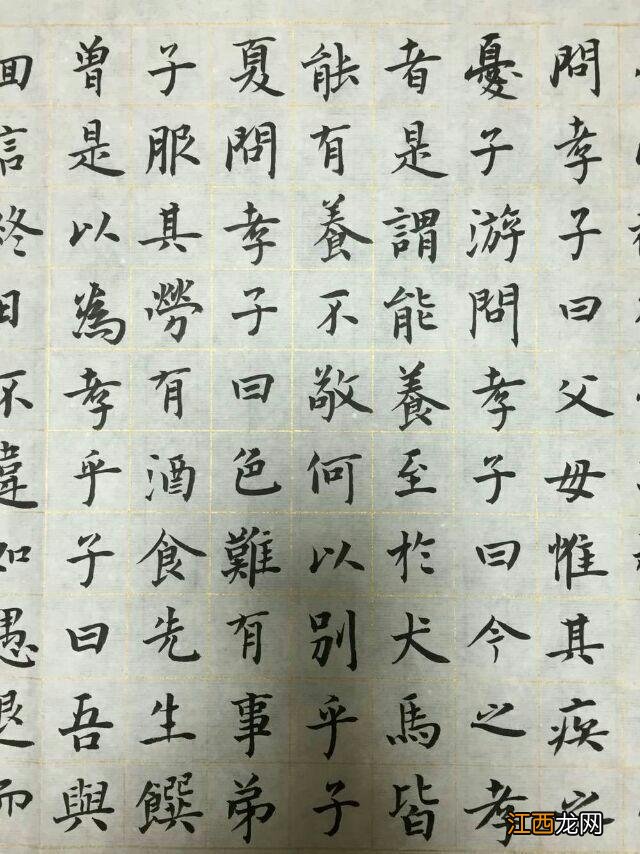 問孝子曰父母惟其疾之
憂子游問孝子曰今之孝
者是謂能養至於犬馬皆
能有養不敬何以別乎子
夏問孝子曰色難有事弟
子服其勞有酒食先生饌
曾是以為孝乎子曰吾與
回言終日不違如愚退而
江西龙网